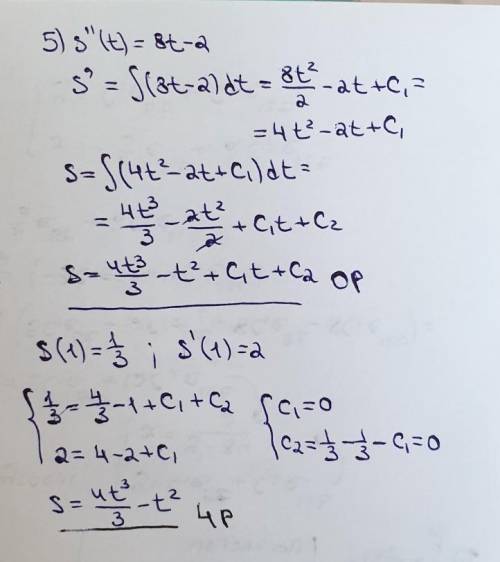 5) s''(t) = 8t-2
s' = ∫(8t-2)dt = 8t²/2 - 2t + C₁ =
= 4t² - 2t + C₁
s = ∫(4t² - 2t + C₁)dt =
= 4t³/3 - 2t²/2 + C₁t + C₂
s = 4t³/3 - t² + C₁t + C₂ OP
s(1) = 1/3 ; s'(1) = 2
{ 1/3 = 4/3 - 1 + C₁ + C₂ { C₁ = 0
2 = 4 - 2 + C₁ C₂ = 1/3 - 1/3 - C₁ = 0
s = 4t³/3 - t² 4P